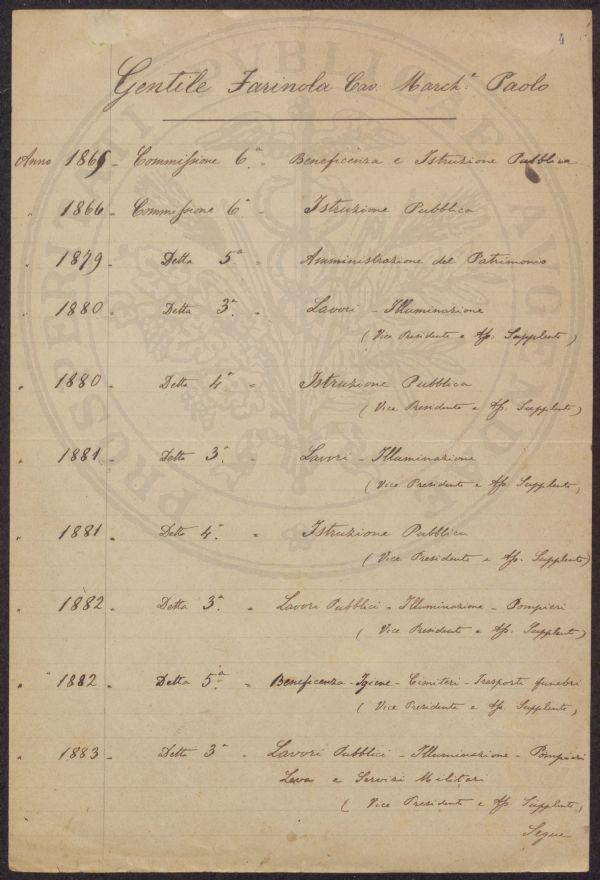 4
Gentile Farinola Cav. March.e Paolo
Anno 1865 - Commissione 6a - Beneficenza e Istruzione Pubblica
" 1866 - Commissione 6a - Istruzione Pubblica
" 1879 - Detta 5a - Amministrazione del Patrimonio
" 1880 - Detta 3a - Lavori - Illuminazione
(Vice Presidente e Ass. Supplente)
" 1880 - Detta 4a - Istruzione Pubblica
(Vice Presidente e Ass. Supplente)
" 1881 - Detta 3a - Lavori - Illuminazione
(Vice Presidente e Ass. Supplente)
" 1881 - Detta 4a - Istruzione Pubblica
(Vice Presidente e Ass. Supplente)
" 1882 - Detta 3a - Lavori Pubblici - Illuminazione - Pompieri
(Vice Presidente e Ass. Supplente)
" 1882 - Detta 5a - Beneficenza - Igiene - Cimiteri - Trasporti funebri
(Vice Presidente e Ass. Supplente)
" 1883 - Detta 3a - Lavori Pubblici - Illuminazione - Pompieri
Leva e Servizi Militari
(Vice Presidente e Ass. Supplente)
Segue
PROSPERITATI PUBLICAE AUGENDAE